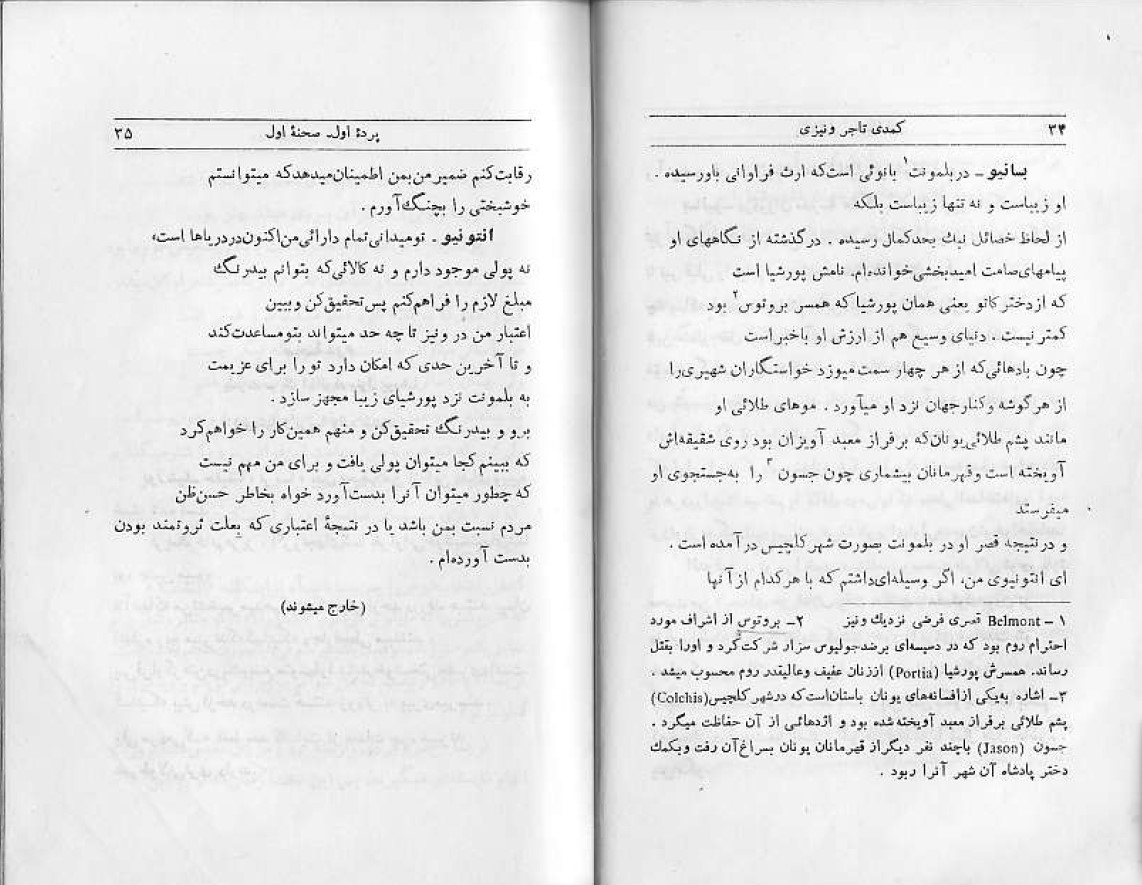 ۳۴ کمدی تاجر ونیزی
بسانیو ـ در بلمونت۱ بانوئی است که ارث فراوانی باورسیده .
او زیباست و نه تنها زیباست بلکه
از لحاظ خصائل نیك بحد کمال رسیده . در گذشته از نگاههای او
پیامهای صامت امید بخشی خوانده‌ام. نامش پورشیا است
که از دختر کاتو یعنی همان پورشیا که همسر بروتوس۲ بود
کمتر نیست . دنیای وسیع هم از ارزش او باخبر است
چون بادهائی که از هر چهار سمت میوزد خواستگاران شهیری را
از هر گوشه و کنار جهان نزد او میآورد . موهای طلائی او
مانند پشم طلائی یونان که بر فراز معبد آویزان بود روی شقیقه‌اش
آویخته است و قهرمانان بیشماری چون جسون۳ را به‌جستجوی او
میفرستد
و در نتیجه قصر او در بلمونت بصورت شهر کلچیس در آمده است .
ای انتونیوی من، اگر وسیله‌ای داشتم که با هر کدام از آنها
۱ ـ Belmont قصری فرضی نزدیك ونیز ۲ـ بروتوس از اشراف مورد
احترام روم بود که در دسیسه‌ای برضد جولیوس سزار شرکت کرد و اورا بقتل
رساند. همسرش پورشیا (Portia) اززنان عفیف وعالیقدر روم محسوب میشد .
۳ـ اشاره به‌یکی ازافسانه‌های یونان باستان است که درشهر کلچیس (Colchis)
پشم طلائی برفراز معبد آویخته شده بود و اژدهائی از آن حفاظت میکرد .
جسون (Jason) باچند نفر دیگر از قهرمانان یونان بسراغ آن رفت وبکمك
دختر پادشاه آن شهر آنرا ربود .
پردهٔ اول ـ صحنهٔ اول ۳۵
رقابت کنم ضمیر من بمن اطمینان میدهد که میتوانستم
خوشبختی را بچنگ آورم .
انتونیو ـ تو میدانی تمام دارائی من اکنون در دریاها است،
نه پولی موجود دارم و نه کالائی که بتوانم بیدرنگ
مبلغ لازم را فراهم کنم پس تحقیق کن و ببین
اعتبار من در ونیز تا چه حد میتواند بتو مساعدت کند
و تا آخرین حدی که امکان دارد تو را برای عزیمت
به بلمونت نزد پورشیای زیبا مجهز سازد .
برو و بیدرنگ تحقیق کن و منهم همین کار را خواهم کرد
که ببینم کجا میتوان پولی یافت و برای من مهم نیست
که چطور میتوان آنرا بدست آورد خواه بخاطر حسن ظن
مردم نسبت بمن باشد یا در نتیجهٔ اعتباری که بعلت ثروتمند بودن
بدست آورده‌ام .
(خارج میشوند)